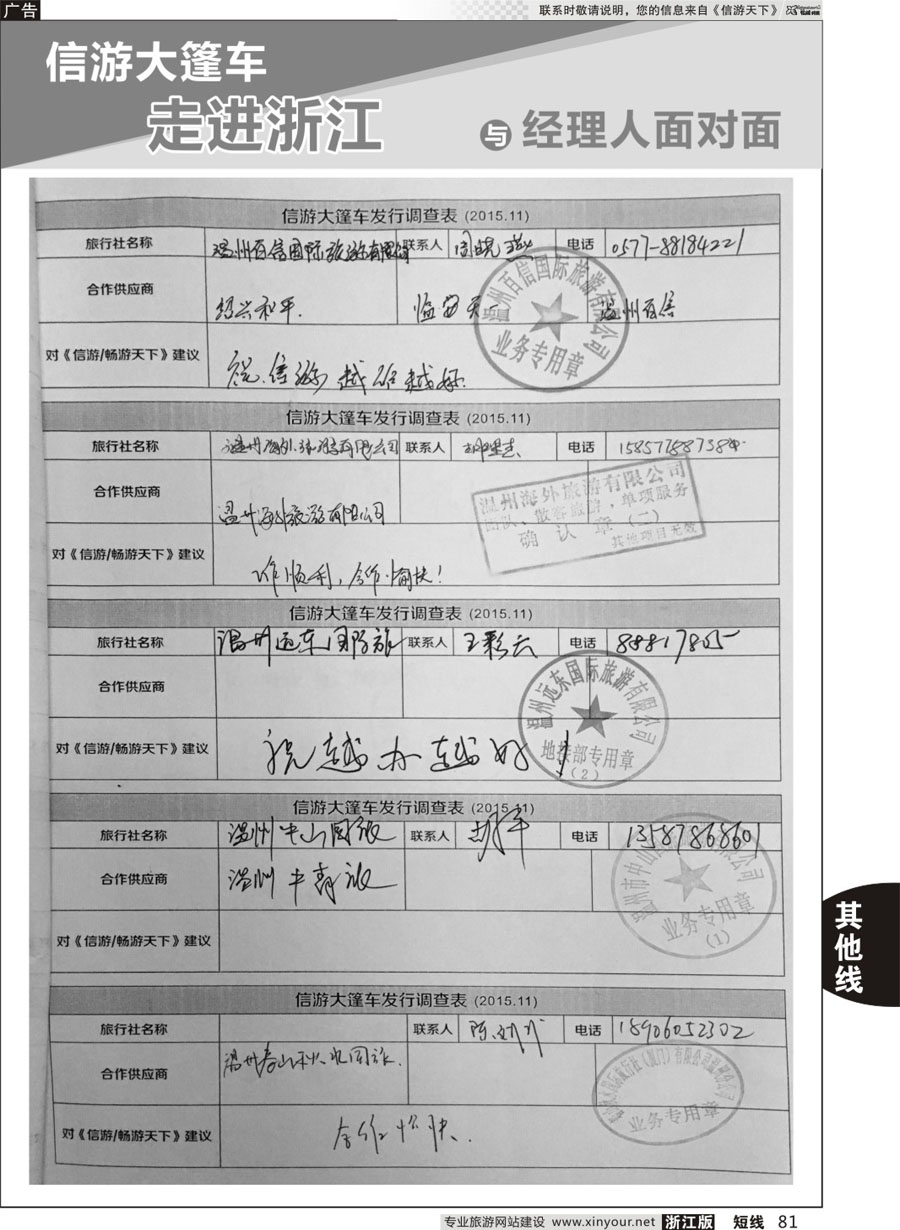 广告
联系时敬请说明，您的信息来自《信游天下》
信游大篷车
走进浙江
与 经理人面对面
信游大篷车发行调查表 (2015.11)
旅行社名称 温州百信国际旅游有限公司 联系人 周晓燕 电话 0577-88184221
合作供应商 绍兴和平. 临安天 温州百信
对《信游/畅游天下》建议 祝信游越来越好.
温州百信国际旅游有限公司
业务专用章
信游大篷车发行调查表 (2015.11)
旅行社名称 温州海外旅游有限公司 联系人 电话
合作供应商 温州海外旅游有限公司
温州海外旅游有限公司
团队、散客旅游，单项服务
确认章（二）
其他项目无效
对《信游/畅游天下》建议 工作顺利，合作愉快！
信游大篷车发行调查表 (2015.11)
旅行社名称 温州远东国际旅 联系人 王彩云 电话 88817805
合作供应商
温州远东国际旅游有限公司
地接部专用章
(2)
对《信游/畅游天下》建议 祝越办越好！
信游大篷车发行调查表 (2015.11)
旅行社名称 温州中山国旅 联系人 胡平 电话 13587868601
合作供应商 温州中青旅
业务专用章
(1)
对《信游/畅游天下》建议
信游大篷车发行调查表 (2015.11)
旅行社名称 联系人 陈 电话 18906052302
合作供应商 温州春山秋水国旅.
业务专用章
对《信游/畅游天下》建议 合作愉快.
其他线
专业旅游网站建设 www.xinyour.net 浙江版 短线 81